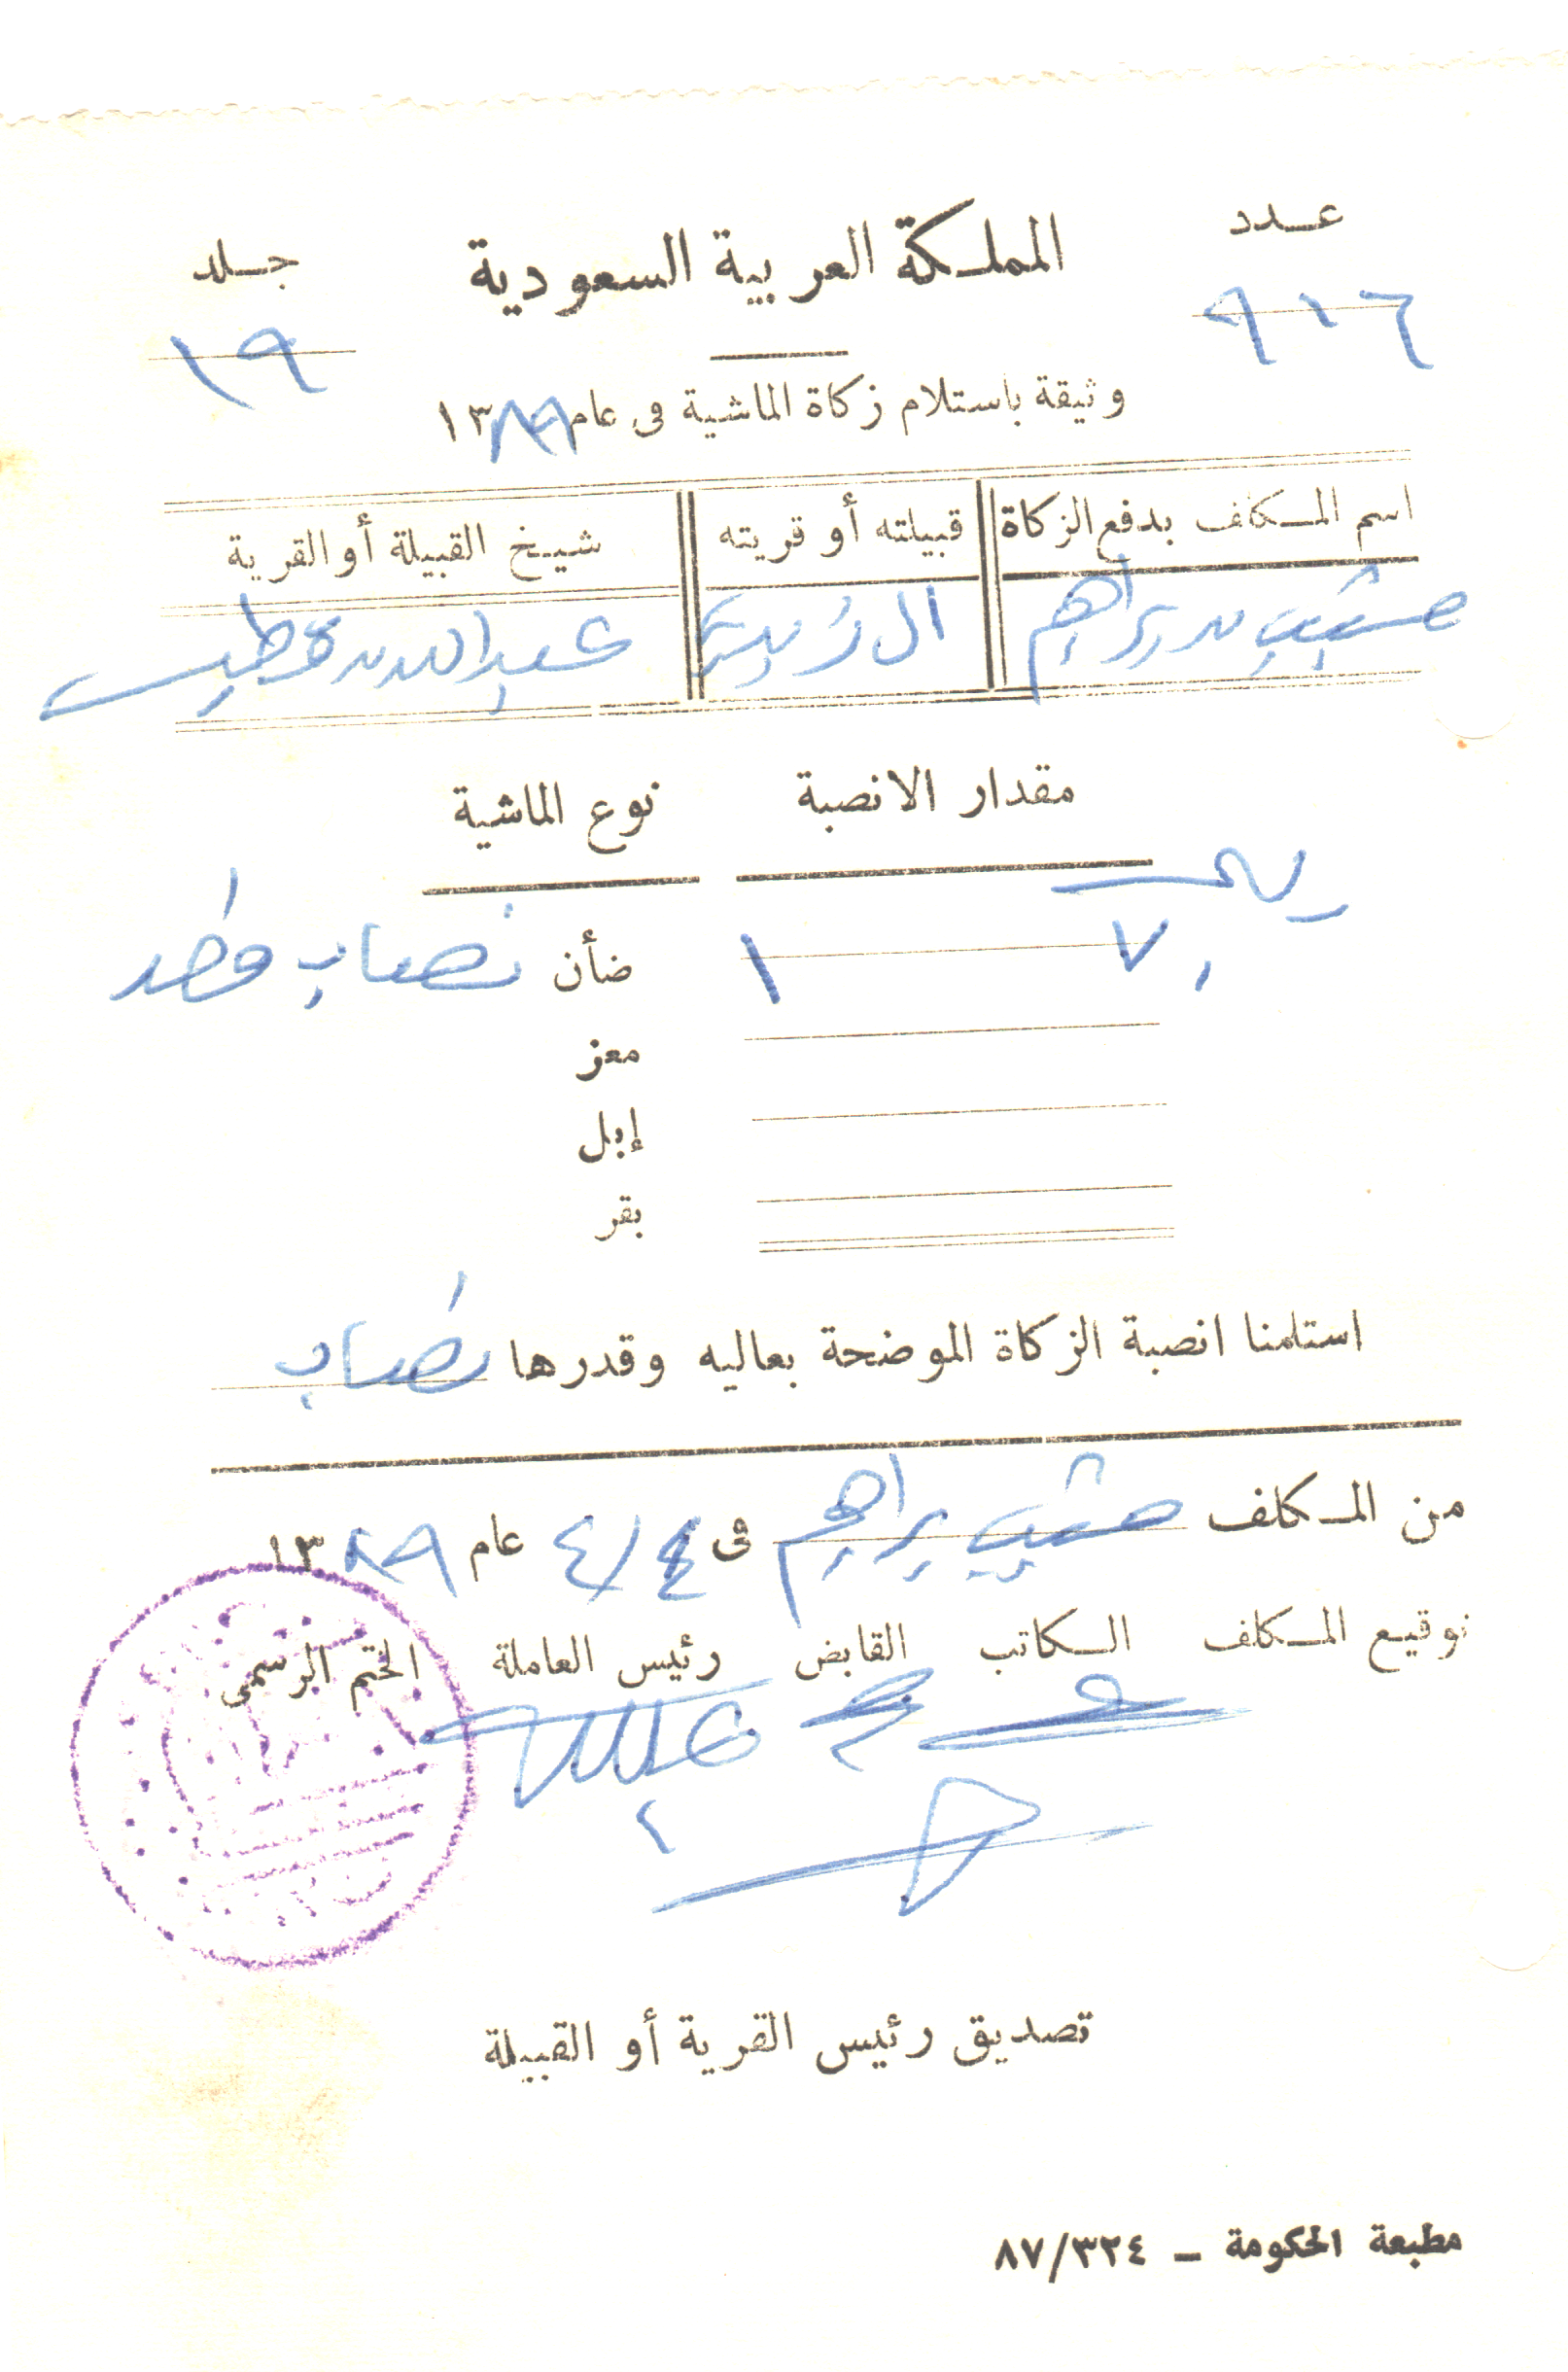 عدد
المملكة العربية السعودية
جلد
٩١٦
١٩
وثيقة باستلام زكاة الماشية فى عام ١٣٨٩
اسم المكلف بدفع الزكاة قبيلته أو قريته شيخ القبيلة أو القرية
ال عبدالله بن
مقدار الانصبة نوع الماشية
ريال
٧ ١ ضأن نصاب واحد
معز
إبل
بقر
استلمنا انصبة الزكاة الموضحة بعاليه وقدرها نصاب
من المكلف فى ٤/٤ عام ١٣٨٩
توقيع المكلف الكاتب القابض رئيس العاملة الختم الرسمى
تصديق رئيس القرية أو القبيلة
مطبعة الحكومة - ٨٧/٣٢٤